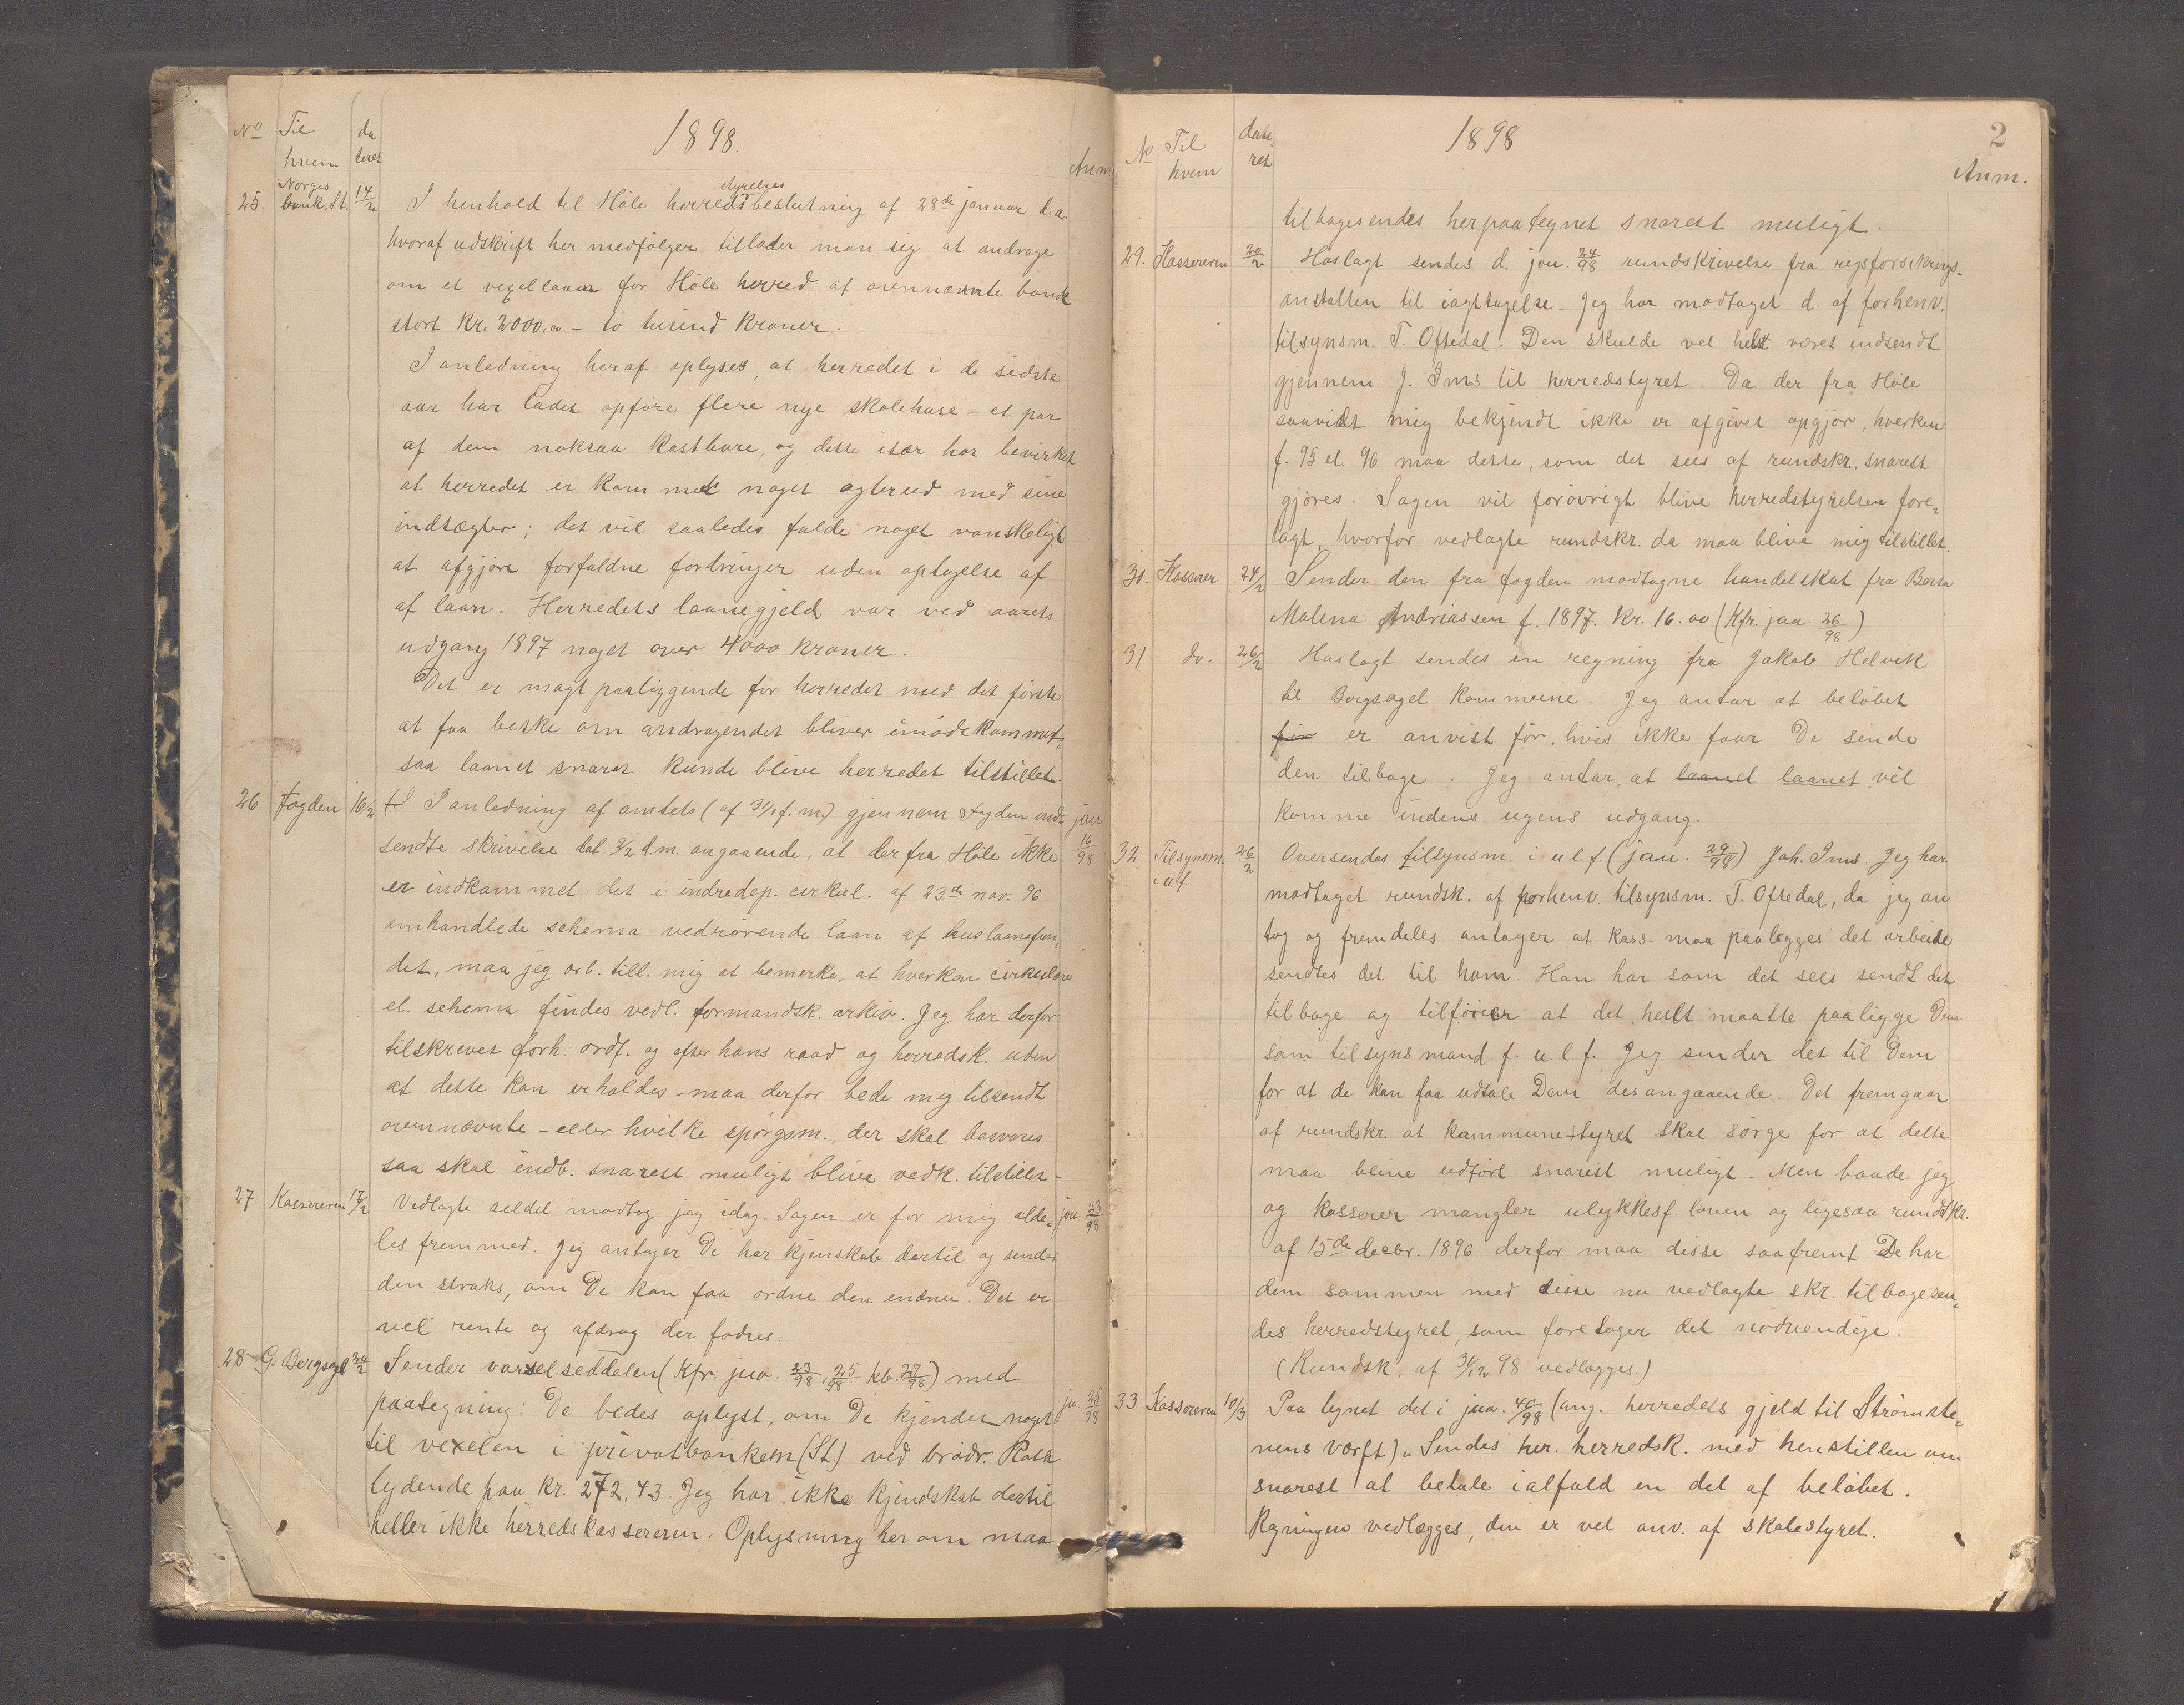 No Til hvem dateret 1898. Anm.
25. Norges bank. St. 14/2 I henhold til Höle herredsstyrelses beslutning af 28de januar d.a.
hvoraf udskrift her medfölger tillader man sig at andrage
om et vexellaan for Höle herred af ovennævnte bank
stort kr. 2000,00 – to tusind kroner.
I anledning heraf oplyses, at herredet i de sidste
aar har ladet opföre flere nye skolehuse – et par
af dem noksaa kostbare, og dette især har bevirket
at herredet er kommet noget agterud med sine
indtægter; det vil saaledes falde noget vanskeligt
at afgjöre forfaldne fordringer uden optagelse af
af laan. Herredets laanegjeld var ved aarets
udgang 1897 noget over 4000 kroner.
Det er magtpaaliggende for herredet med det förste
at faa beske om andragendet bliver imödekommet,
saa laanet snarest kunde blive herredet tilstillet.
26 Fogden 16/2 I anledning af amtets (af 31/1 f.m.) gjennem fogden ind- jou
sendte skrivelse dat. 3/2 d.m. angaaende, at der fra Höle ikke 16/98
er indkommet det i indredep. cirkul. af 23de nov. 96
omhandlede schema vedrörende laan af huslaanefon-
det, maa jeg ærb. till. mig at bemerke, at hverken cirkulære
el. schema findes vedl. formandsk. arkiv. Jeg har derfor
tilskrevet forh. ordf. og efter hans raad og herredsk. uden
at dette kan erholdes – maa derfor bede mig tilsendt
ovennævnte – eller hvilke spörgsm., der skal besvares
saa skal indb. snarest muligt blive vedk. tilstillet –
27 Kassereren 17/2 Vedlagte seddel modtog jeg idag. Sagen er for mig alde- jou 23/98
les fremmed. Jeg antager De har kjenskab dertil og sender
den straks, om De kan faa ordne den endnu. Det er
vel rente og afdrag der fodres.
28 G. Bergsagel 20/2 Sender varselseddelen (kfr. jou. 23/98, 25/98 kb. 27/98) med
paategning: De bedes oplyst, om De kjender noget jo. 25/98
til vexelen i privatbanken (St.) ved brödr. Rath
lydende paa kr. 272,43. Jeg har ikke kjendskab dertil
heller ikke herredskassereren. Oplysning her om maa
No Til hvem dateret 1898 2
Anm.
tilbagesendes herpaategnet snarest muligt.
29. Kassereren 20/2 Hoslagt sendes d. jou. 24/98 rundskrivelse fra rigsforsikrings-
anstalten til iagttagelse. Jeg har modtaget d. af forhenv.
tilsynsm. T. Oftedal. Den skulde vel helst været indsendt
gjennem J. Ims til herredstyret. Da der fra Höle
saavidt mig bekjendt ikke er afgivet opgjör, hverken
f. 95 el. 96 maa dette, som det sees af rundskr. snarest
gjöres. Sagen vil forövrigt blive herredstyrelsen fore-
lagt, hvorfor vedlagte rundskr. da maa blive mig tilstillet.
30. Kasserer 24/2 Sender den fra fogden modtagne handelskat fra Berta
Malena Andriassen f. 1897. Kr. 16.00 (Kfr. jou. 26/98)
31 do. 26/2 Hoslagt sendes en regning fra Jakob Helvik
til Borgsagel kommune. Jeg antar at belöbet
för er anvist för, hvis ikke faar De sende
den tilbage. Jeg antar, at laanet laanet vil
komme indens ugens udgang.
32 Tilsynsm. i ulf 26/2 Oversendes tilsynsm. i u.l.f (jou. 29/98) Joh. Ims. Jeg har
modtaget rundsk. af forhenv. tilsynsm. T. Oftedal, da jeg an
tog og fremdeles antager at kass. maa paalegges det arbeide
sendtes det til ham. Han har som det sees sendt det
tilbage og tilföier at det helst maatte paaligge Dem
som tilsynsmand f. u.l.f. Jeg sender det til Dem
for at de kan faa udtale Dem desangaaende. Det fremgaar
af rundskr. at kommunestyret skal sörge for at dette
maa blive udfört snarest muligt. Men baade jeg
og kasserer mangler ulykkesf. loven og ligesaa rundskr.
af 15de decbr. 1896 derfor maa disse saafremt De har
dem sammen med disse nu vedlagte skr. tilbagesen-
des herredstyret, som foretager det nödvendige.
(Rundsk. af 31/12 98 vedlægges.)
33 Kassereren 10/3 Paa tegnet det i jou. 40/98 (ang. herredets gjeld til Strömste-
nens værft). Sendes her. herredsk. med henstillen om
snarest at betale ialfald en del af belöbet.
Regningen vedlægges, den er vel anv. af skolestyret.